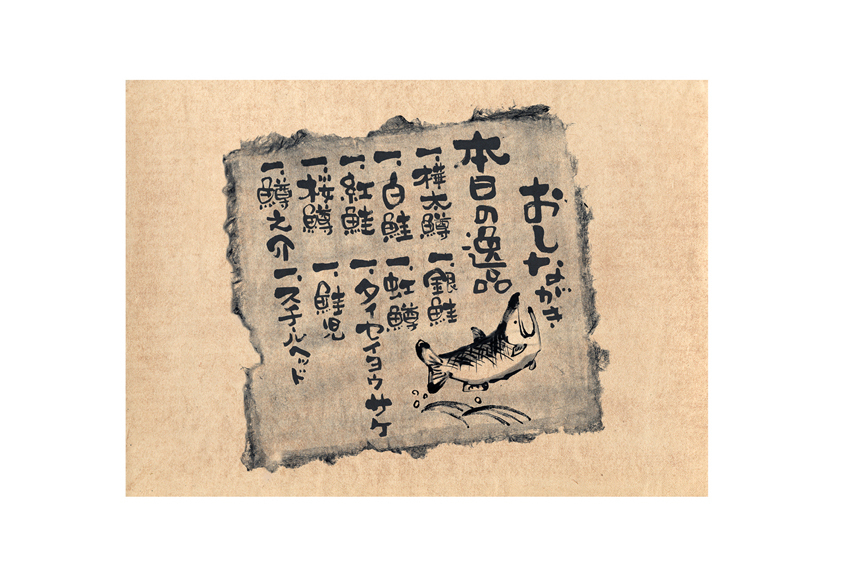 おしながき
本日の逸品
一、樺太鱒
一、銀鮭
一、白鮭
一、虹鱒
一、紅鮭
一、タイセイヨウサケ
一、桜鱒
一、鮭児
一、鱒之介
一、スチールヘッド